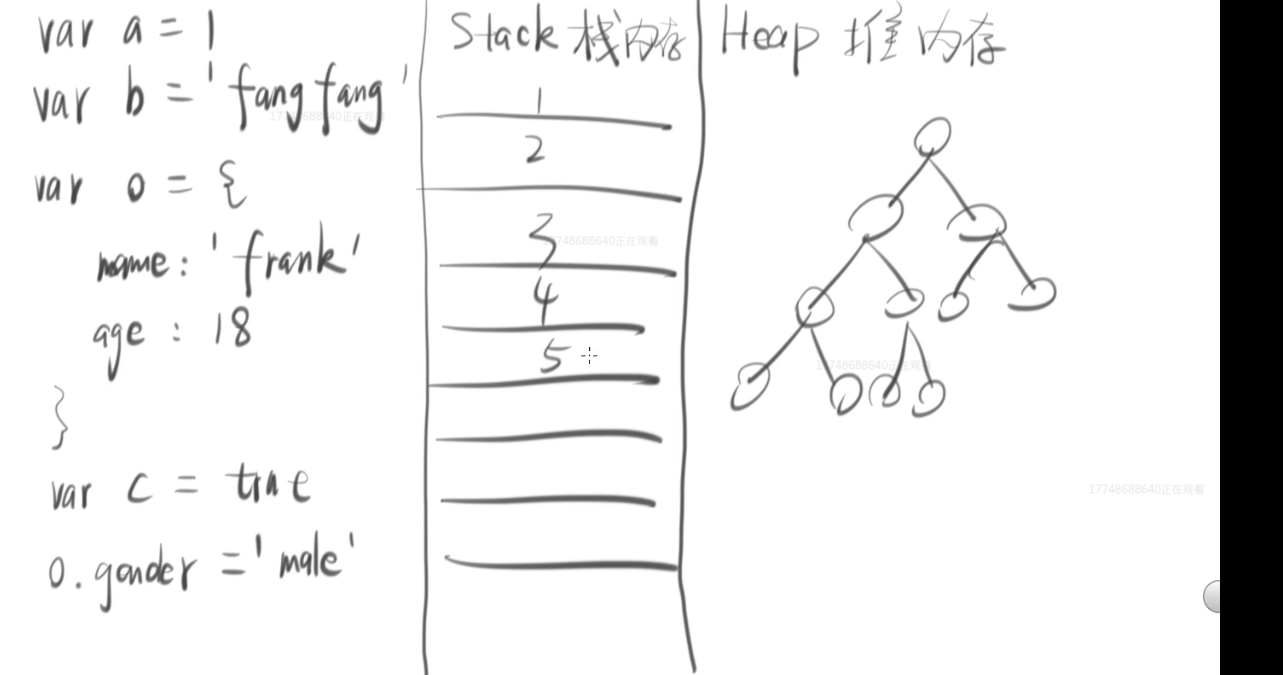 var a = 1
var b = 'fangfang'
var o = {
name: 'frank'
age : 18
}
var c = true
o.gender = 'male'
Stack 栈内存
1
2
3
4
5
Heap 堆内存
17748688640正在观看
17748688640正在观看
17748688640正在观看
17748688640正在观看